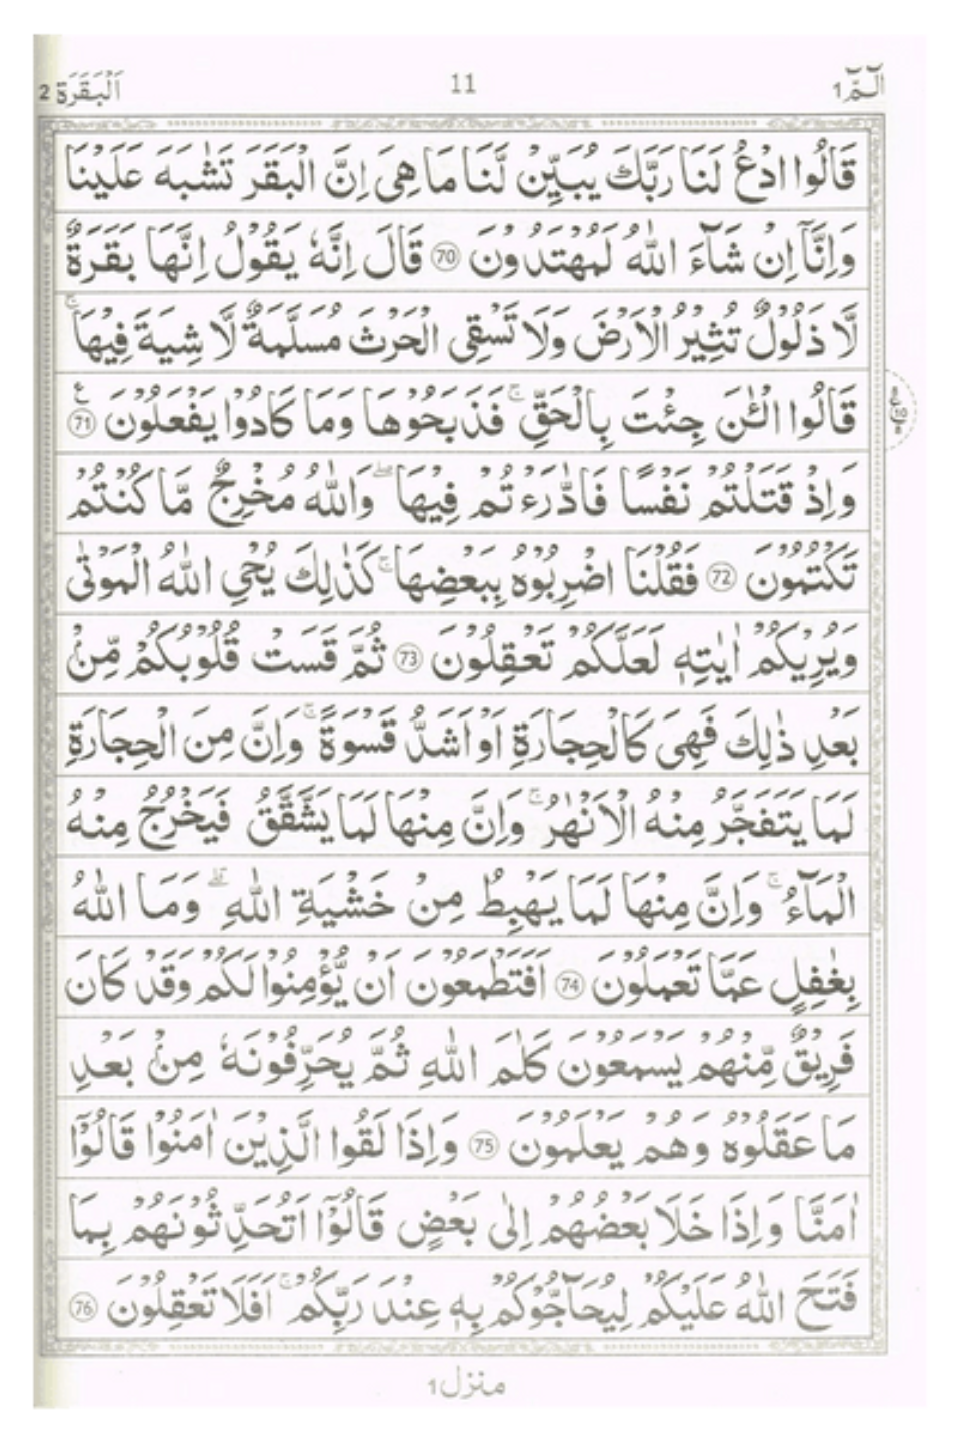 الٓمّٓ 1
11
اَلْبَقَرَة 2
قَالُوا ادْعُ لَنَا رَبَّكَ يُبَيِّنْ لَّنَا مَا هِىَ اِنَّ الْبَقَرَ تَشٰبَهَ عَلَيْنَا
وَاِنَّآ اِنْ شَآءَ اللّٰهُ لَمُهْتَدُوْنَ ﴿70﴾ قَالَ اِنَّهٗ يَقُوْلُ اِنَّهَا بَقَرَةٌ
لَّا ذَلُوْلٌ تُثِيْرُ الْاَرْضَ وَلَا تَسْقِى الْحَرْثَ مُسَلَّمَةٌ لَّا شِيَةَ فِيْهَا ۚ
قَالُوا الْـٰٔنَ جِئْتَ بِالْحَقِّ ۚ فَذَبَحُوْهَا وَمَا كَادُوْا يَفْعَلُوْنَ ﴿71﴾ ع
10
وَاِذْ قَتَلْتُمْ نَفْسًا فَادّٰرَءْتُمْ فِيْهَا ؕ وَاللّٰهُ مُخْرِجٌ مَّا كُنْتُمْ
تَكْتُمُوْنَ ﴿72﴾ فَقُلْنَا اضْرِبُوْهُ بِبَعْضِهَا ؕ كَذٰلِكَ يُحْىِ اللّٰهُ الْمَوْتٰى
وَيُرِيْكُمْ اٰيٰتِهٖ لَعَلَّكُمْ تَعْقِلُوْنَ ﴿73﴾ ثُمَّ قَسَتْ قُلُوْبُكُمْ مِّنْۢ
بَعْدِ ذٰلِكَ فَهِىَ كَالْحِجَارَةِ اَوْ اَشَدُّ قَسْوَةً ؕ وَاِنَّ مِنَ الْحِجَارَةِ
لَمَا يَتَفَجَّرُ مِنْهُ الْاَنْهٰرُ ؕ وَاِنَّ مِنْهَا لَمَا يَشَّقَّقُ فَيَخْرُجُ مِنْهُ
الْمَآءُ ؕ وَاِنَّ مِنْهَا لَمَا يَهْبِطُ مِنْ خَشْيَةِ اللّٰهِ ؕ وَمَا اللّٰهُ
بِغٰفِلٍ عَمَّا تَعْمَلُوْنَ ﴿74﴾ اَفَتَطْمَعُوْنَ اَنْ يُّؤْمِنُوْا لَكُمْ وَقَدْ كَانَ
فَرِيْقٌ مِّنْهُمْ يَسْمَعُوْنَ كَلٰمَ اللّٰهِ ثُمَّ يُحَرِّفُوْنَهٗ مِنْۢ بَعْدِ
مَا عَقَلُوْهُ وَهُمْ يَعْلَمُوْنَ ﴿75﴾ وَاِذَا لَقُوا الَّذِيْنَ اٰمَنُوْا قَالُوْٓا
اٰمَنَّا وَاِذَا خَلَا بَعْضُهُمْ اِلٰى بَعْضٍ قَالُوْٓا اَتُحَدِّثُوْنَهُمْ بِمَا
فَتَحَ اللّٰهُ عَلَيْكُمْ لِيُحَآجُّوْكُمْ بِهٖ عِنْدَ رَبِّكُمْ ؕ اَفَلَا تَعْقِلُوْنَ ﴿76﴾
منزل 1